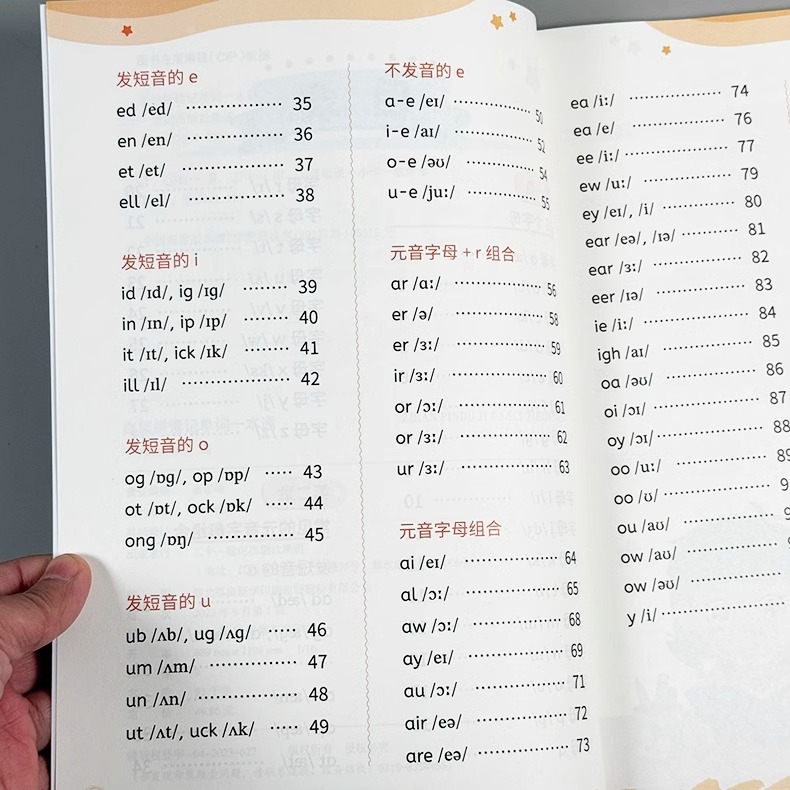 发短音的 e
ed /ed/ ················· 35
en /en/ ················· 36
et /et/ ·················· 37
ell /el/ ················· 38
发短音的 i
id /ɪd/, ig /ɪg/ ········ 39
in /ɪn/, ip /ɪp/ ········ 40
it /ɪt/, ick /ɪk/ ········ 41
ill /ɪl/ ··················· 42
发短音的 o
og /ɒg/, op /ɒp/ ····· 43
ot /ɒt/, ock /ɒk/ ····· 44
ong /ɒŋ/ ··············· 45
发短音的 u
ub /ʌb/, ug /ʌg/ ····· 46
um /ʌm/ ··············· 47
un /ʌn/ ················ 48
ut /ʌt/, uck /ʌk/ ····· 49
不发音的 e
a-e /eɪ/ ··············· 50
i-e /aɪ/ ················ 52
o-e /əʊ/ ··············· 54
u-e /juː/ ··············· 55
元音字母 + r 组合
ar /ɑː/ ················· 56
er /ə/ ·················· 58
er /ɜː/ ················· 59
ir /ɜː/ ·················· 60
or /ɔː/ ················· 61
or /ɜː/ ················· 62
ur /ɜː/ ················· 63
元音字母组合
ai /eɪ/ ·················· 64
al /ɔː/ ·················· 65
aw /ɔː/ ················ 68
ay /eɪ/ ················· 69
au /ɔː/ ················· 71
air /eə/ ················ 72
are /eə/ ··············· 73
ea /iː/ ················· 74
ea /e/ ·················· 76
ee /iː/ ·················· 77
ew /uː/ ················ 79
ey /eɪ/, /i/ ············ 80
ear /eə/, /ɪə/ ········ 81
ear /ɜː/ ················ 82
eer /ɪə/ ················ 83
ie /iː/ ··················· 84
igh /aɪ/ ················ 85
oa /əʊ/ ················ 86
oi /ɔɪ/ ·················· 87
oy /ɔɪ/ ·················· 88
oo /uː/ ················· 89
oo /ʊ/ ··················
ou /aʊ/ ················
ow /aʊ/ ···············
ow /əʊ/ ···············
y /i/ ·····················